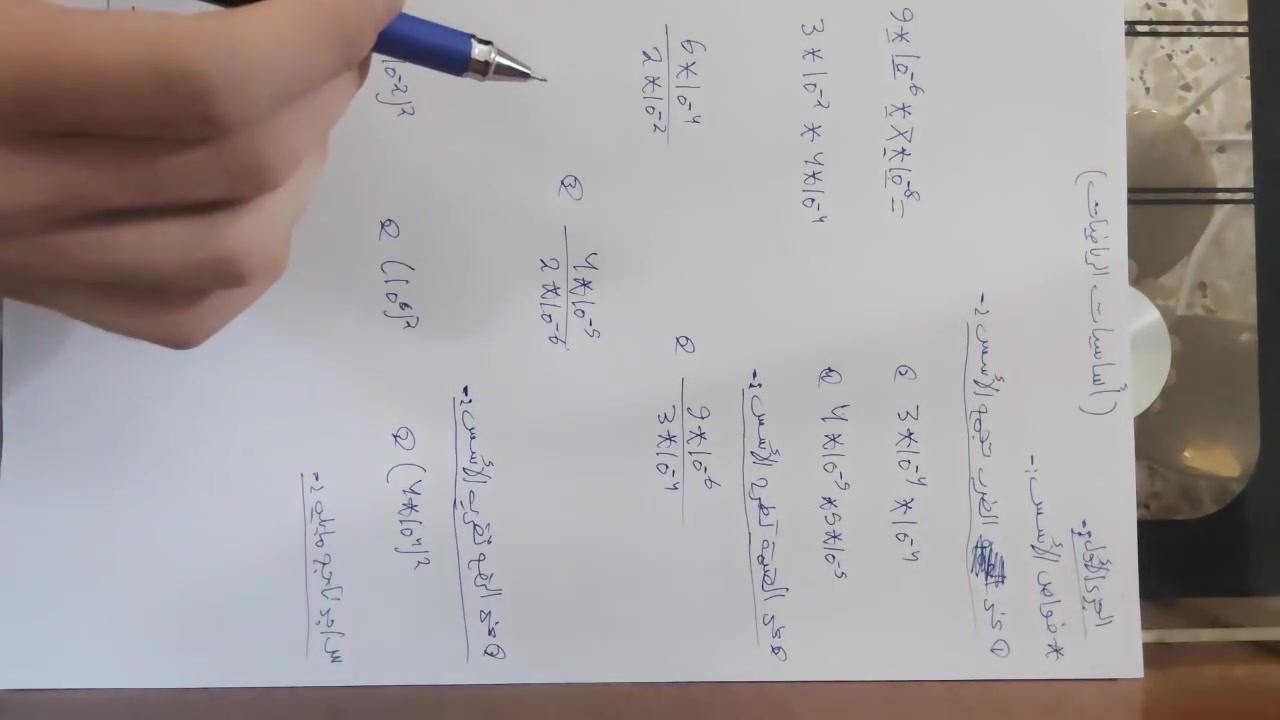 (أساسيات الرياضيات)
الجزء الأول :-
* خواص الأسس :-
① عند الضرب تجمع الأسس :-
Q 3*10⁻⁴ * 10⁻⁴
9*10⁻⁶ * 7*10⁻⁸ =
Q 4*10⁻⁹ *5*10⁻⁵
3 * 10⁻² * 4*10⁻⁴
② عند القسمة تطرح الأسس :-
Q 9*10⁻⁶ / 3*10⁻⁴
6*10⁻⁴ / 2*10⁻²
Q 4*10⁻⁵ / 2*10⁻⁶
③ عند الرفع تضرب الأسس :-
Q (4*10⁴)²
Q (10⁶)²
10⁻²)²